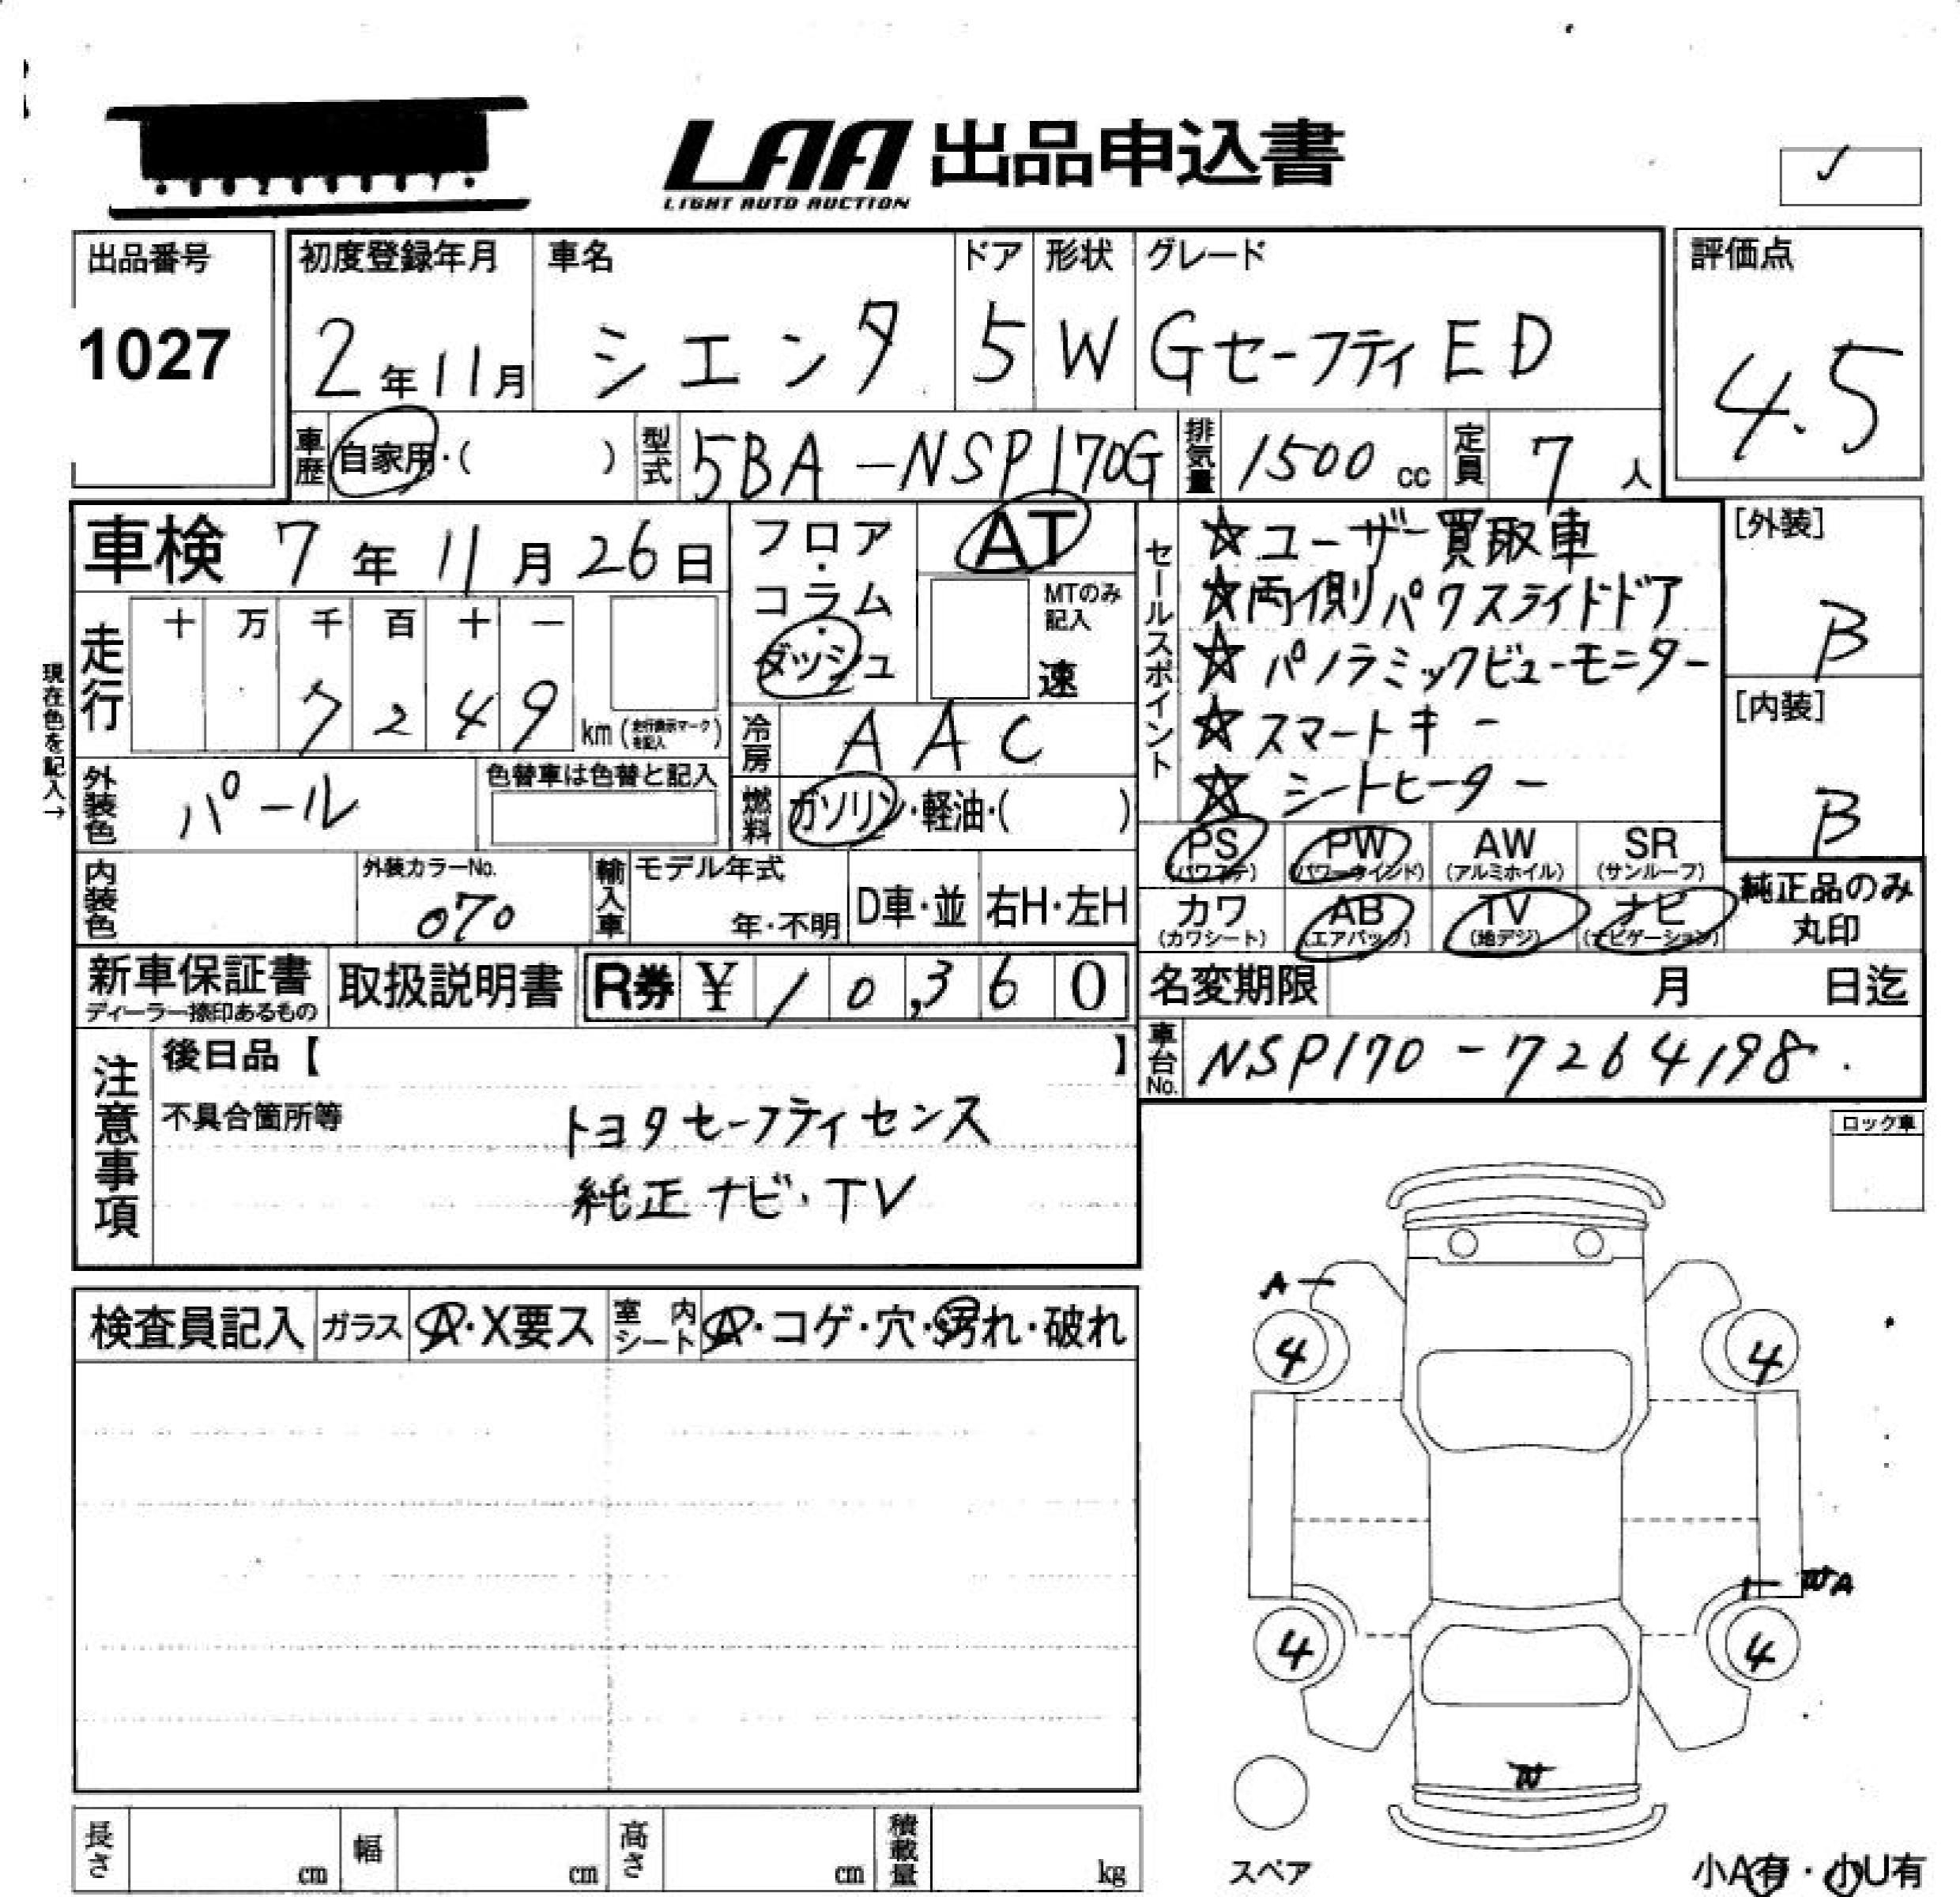 LAA 出品申込書
LIGHT AUTO AUCTION
✓
出品番号
1027
初度登録年月
2年11月
車名
シエンタ
ドア
5
形状
W
グレード
Gセーフティ ED
評価点
4.5
車歴
自家用・( )
型式
5BA-NSP170G
排気量
1500 cc
定員
7 人
車検 7年11月26日
フロア・コラム・ダッシュ
AT
MTのみ記入
速
セールスポイント
☆ユーザー買取車
☆両側パワスライドドア
☆パノラミックビューモニター
☆スマートキー
☆シートヒーター
[外装]
B
[内装]
B
現在色を記入→
走行
十 万 千 百 十 一
7 2 4 9
km (走行表示マークを記入)
冷房
AAC
外装色
パール
色替車は色替と記入
燃料
ガソリン・軽油・( )
PS
(パワステ)
PW
(パワーウインド)
AW
(アルミホイル)
SR
(サンルーフ)
内装色
外装カラーNo.
070
輸入車
モデル年式
年・不明
D車・並
右H・左H
カワ
(カワシート)
AB
(エアバッグ)
TV
(地デジ)
ナビ
(ナビゲーション)
純正品のみ
丸印
新車保証書
ディーラー捺印あるもの
取扱説明書
R券 ¥10,360
名変期限 月 日迄
車台No.
NSP170-7264198
注意事項
後日品【 】
不具合箇所等
トヨタセーフティセンス
純正ナビ・TV
ロック車
検査員記入
ガラス
A・X要ス
室内シート
A・コゲ・穴・汚れ・破れ
A
4
4
WA
4
4
W
スペア
長さ cm
幅 cm
高さ cm
積載量 kg
小A有・小U有